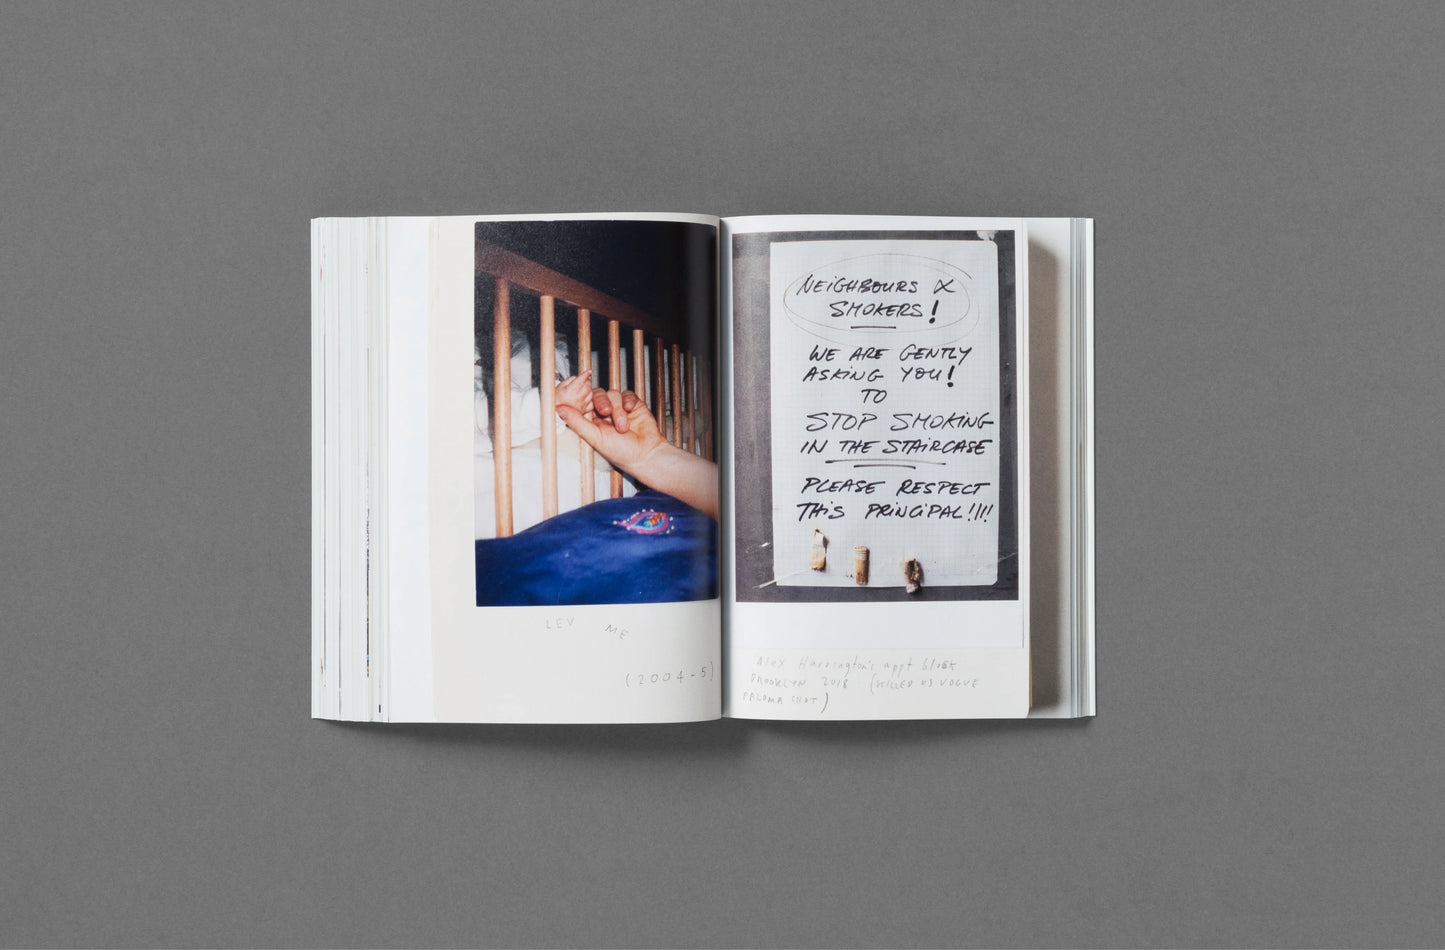 LEV ME
(2004-5)
NEiGHBOURS &
SMOKERS!
WE ARE GENTLY
ASKiNG YOU!
TO
STOP SMOKiNG
iN THE STAiRCASE
PLEASE RESPECT
THiS PRiNCiPAL!!!!
Alex Harrington's appt block
BROOKLYN 2018 (KILLED US VOGUE
PALOMA SHOT)